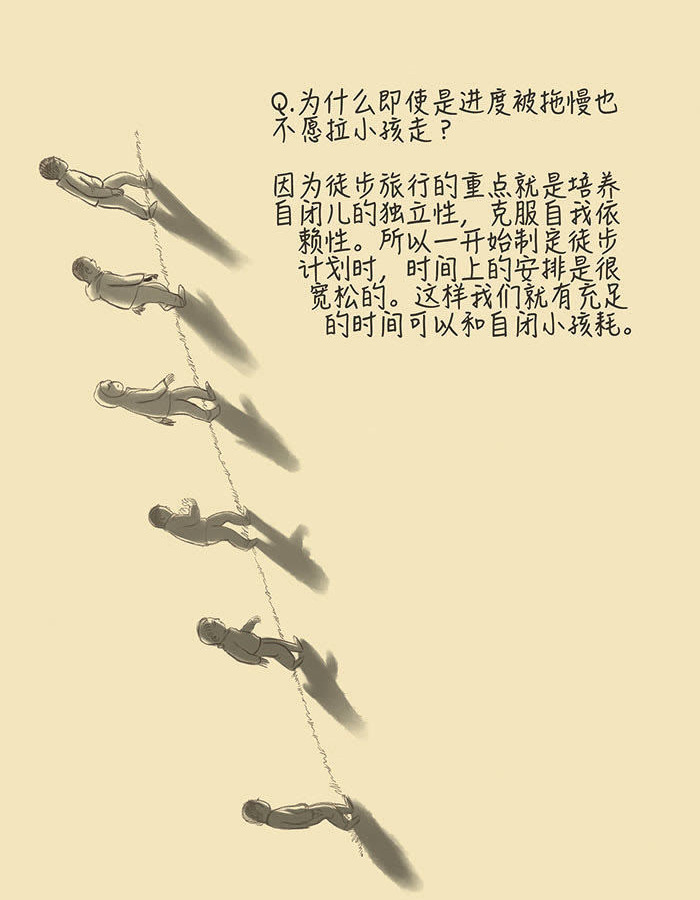 Q.为什么即使是进度被拖慢也
不愿拉小孩走？
因为徒步旅行的重点就是培养
自闭儿的独立性，克服自我依
赖性。所以一开始制定徒步
计划时，时间上的安排是很
宽松的。这样我们就有充足
的时间可以和自闭小孩耗。